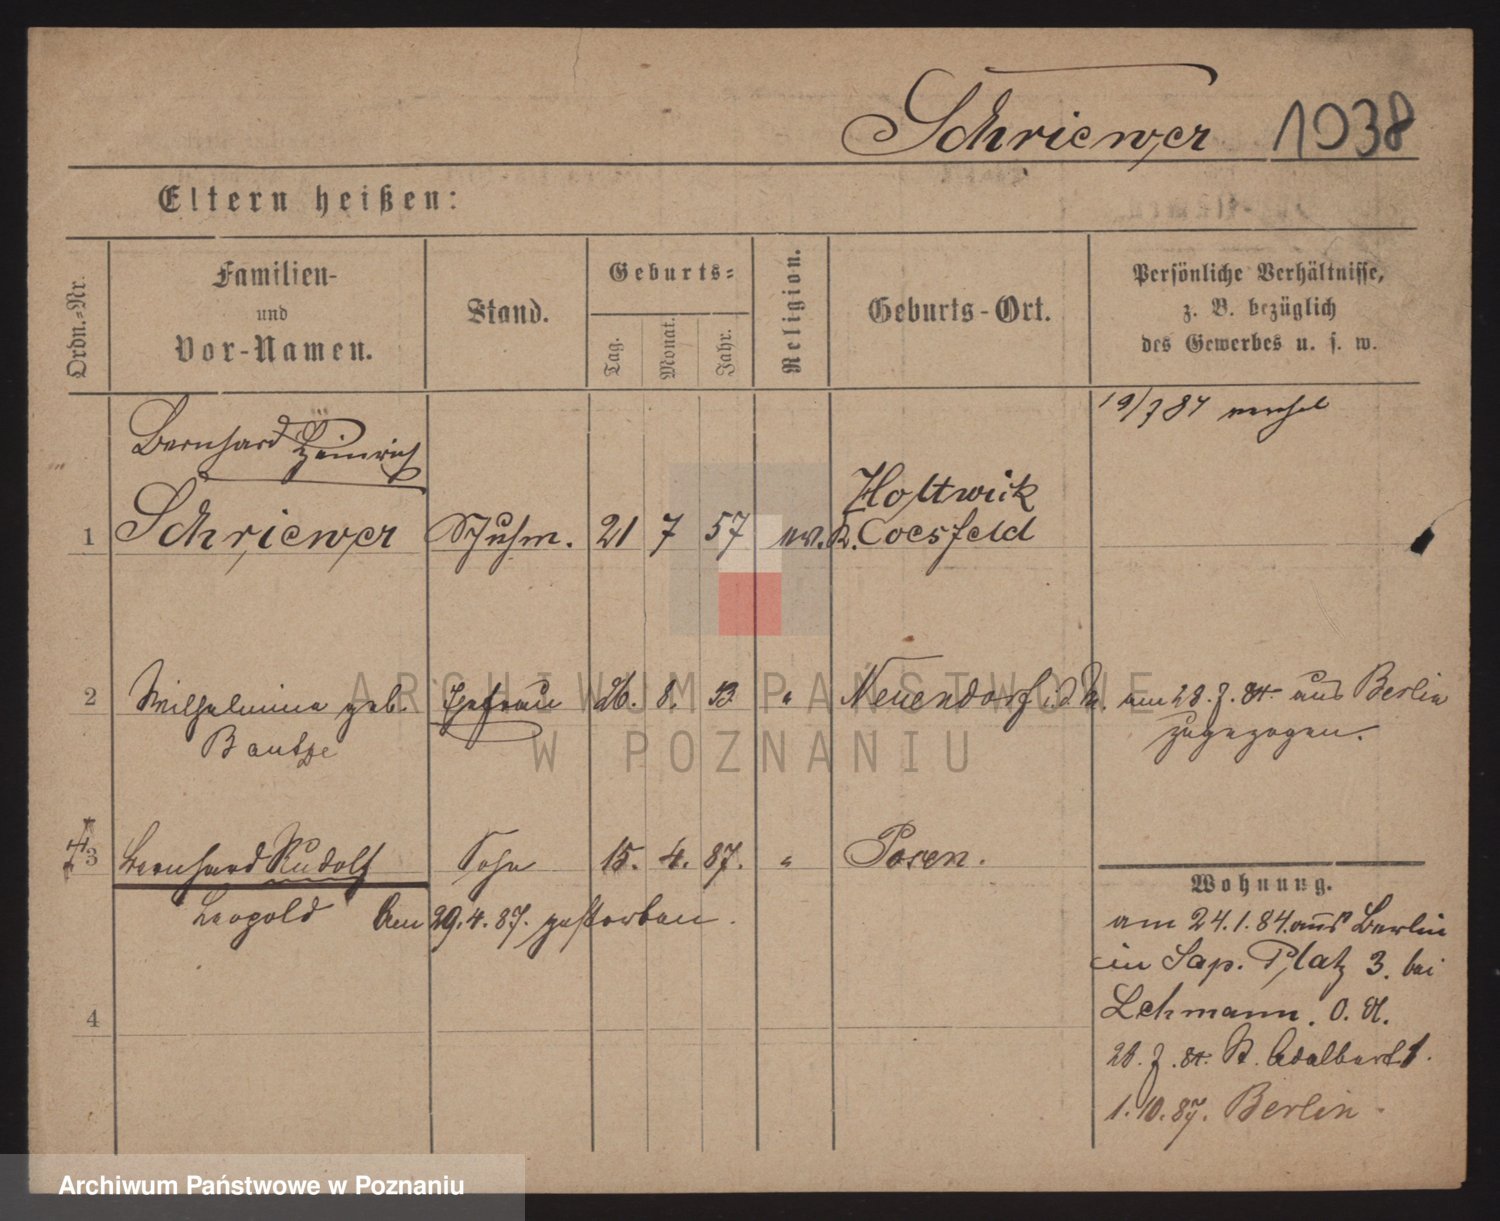 Schriewer 1038
Eltern heißen:
Ordn.-Nr.
Familien-
und
Vor-Namen.
Stand.
Geburts-
Tag.
Monat.
Jahr.
Religion.
Geburts-Ort.
Persönliche Verhältnisse,
z. B. bezüglich
des Gewerbes u. s. w.
Bernhard Heinrich
1 Schriewer Schuhm. 21 7 57 ev. Holtwick
K. Coesfeld
2 Wilhelmine geb. Ehefrau 26. 8. 53 " Neuendorf am 28. 7. 84 aus Berlin
Bautze zugezogen.
3 Bernhard Rudolf Sohn 15. 4. 87. " Posen.
Leopold Am 29. 4. 87. gestorben.
4
Wohnung.
am 24. 1. 84. aus Berlin
in Sap. Platz 3. bei
Lehmann. O. A.
28. 7. 84. St. Adalbert 1.
1. 10. 87. Berlin
ARCHIWUM PAŃSTWOWE
W POZNANIU
Archiwum Państwowe w Poznaniu